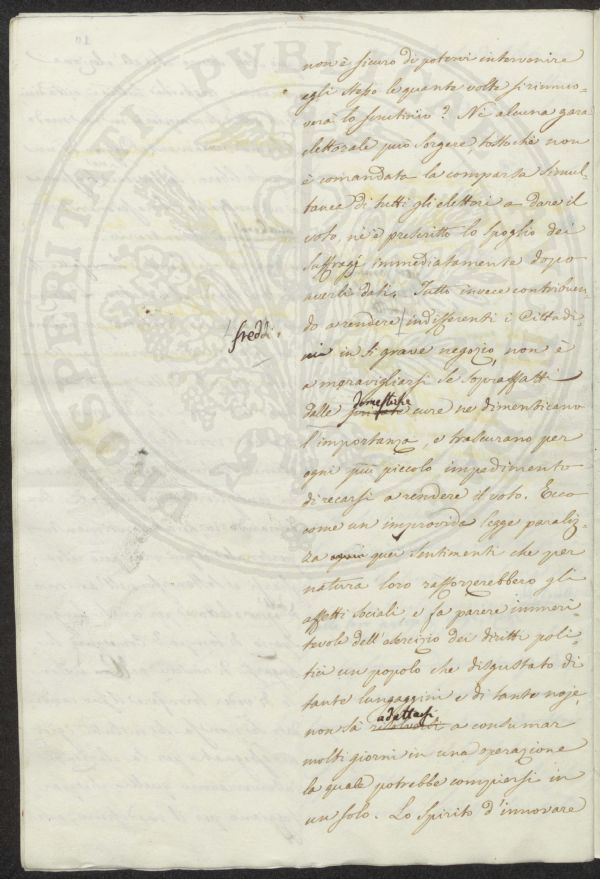 non è sicuro di potervi intervenire
egli stesso le quante volte si rinnuo-
verà lo scrutinio? Nè alcuna gara
elettorale può sorgere tostochè non
è comandata la comparsa simul-
tanea di tutti gli elettori a dare il
voto, nè è prescritto lo spoglio dei
suffragj immediatamente dopo
averli dati. Tutto invece contribuen-
do a rendere indifferenti i Cittadi-
freddi
ni in sì grave negozio, non è
a maravigliarsi se sopraffatti
domestiche
dalle cure ne dimenticano
l'importanza, e trascurano per
ogni più piccolo impedimento
di recarsi a rendere il voto. Ecco
come un improvida legge paraliz-
za quei sentimenti che per
natura loro rafforzerebbero gli
affetti sociali, e fa parere immeri-
tevole dell'esercizio dei diritti poli-
tici un popolo che disgustato di
tante lungaggini e di tante noje,
adattarsi
non sa a consumar
molti giorni in una operazione
la quale potrebbe compiersi in
un solo. Lo spirito d'innovare
PROSPERITATI PVBLICAE